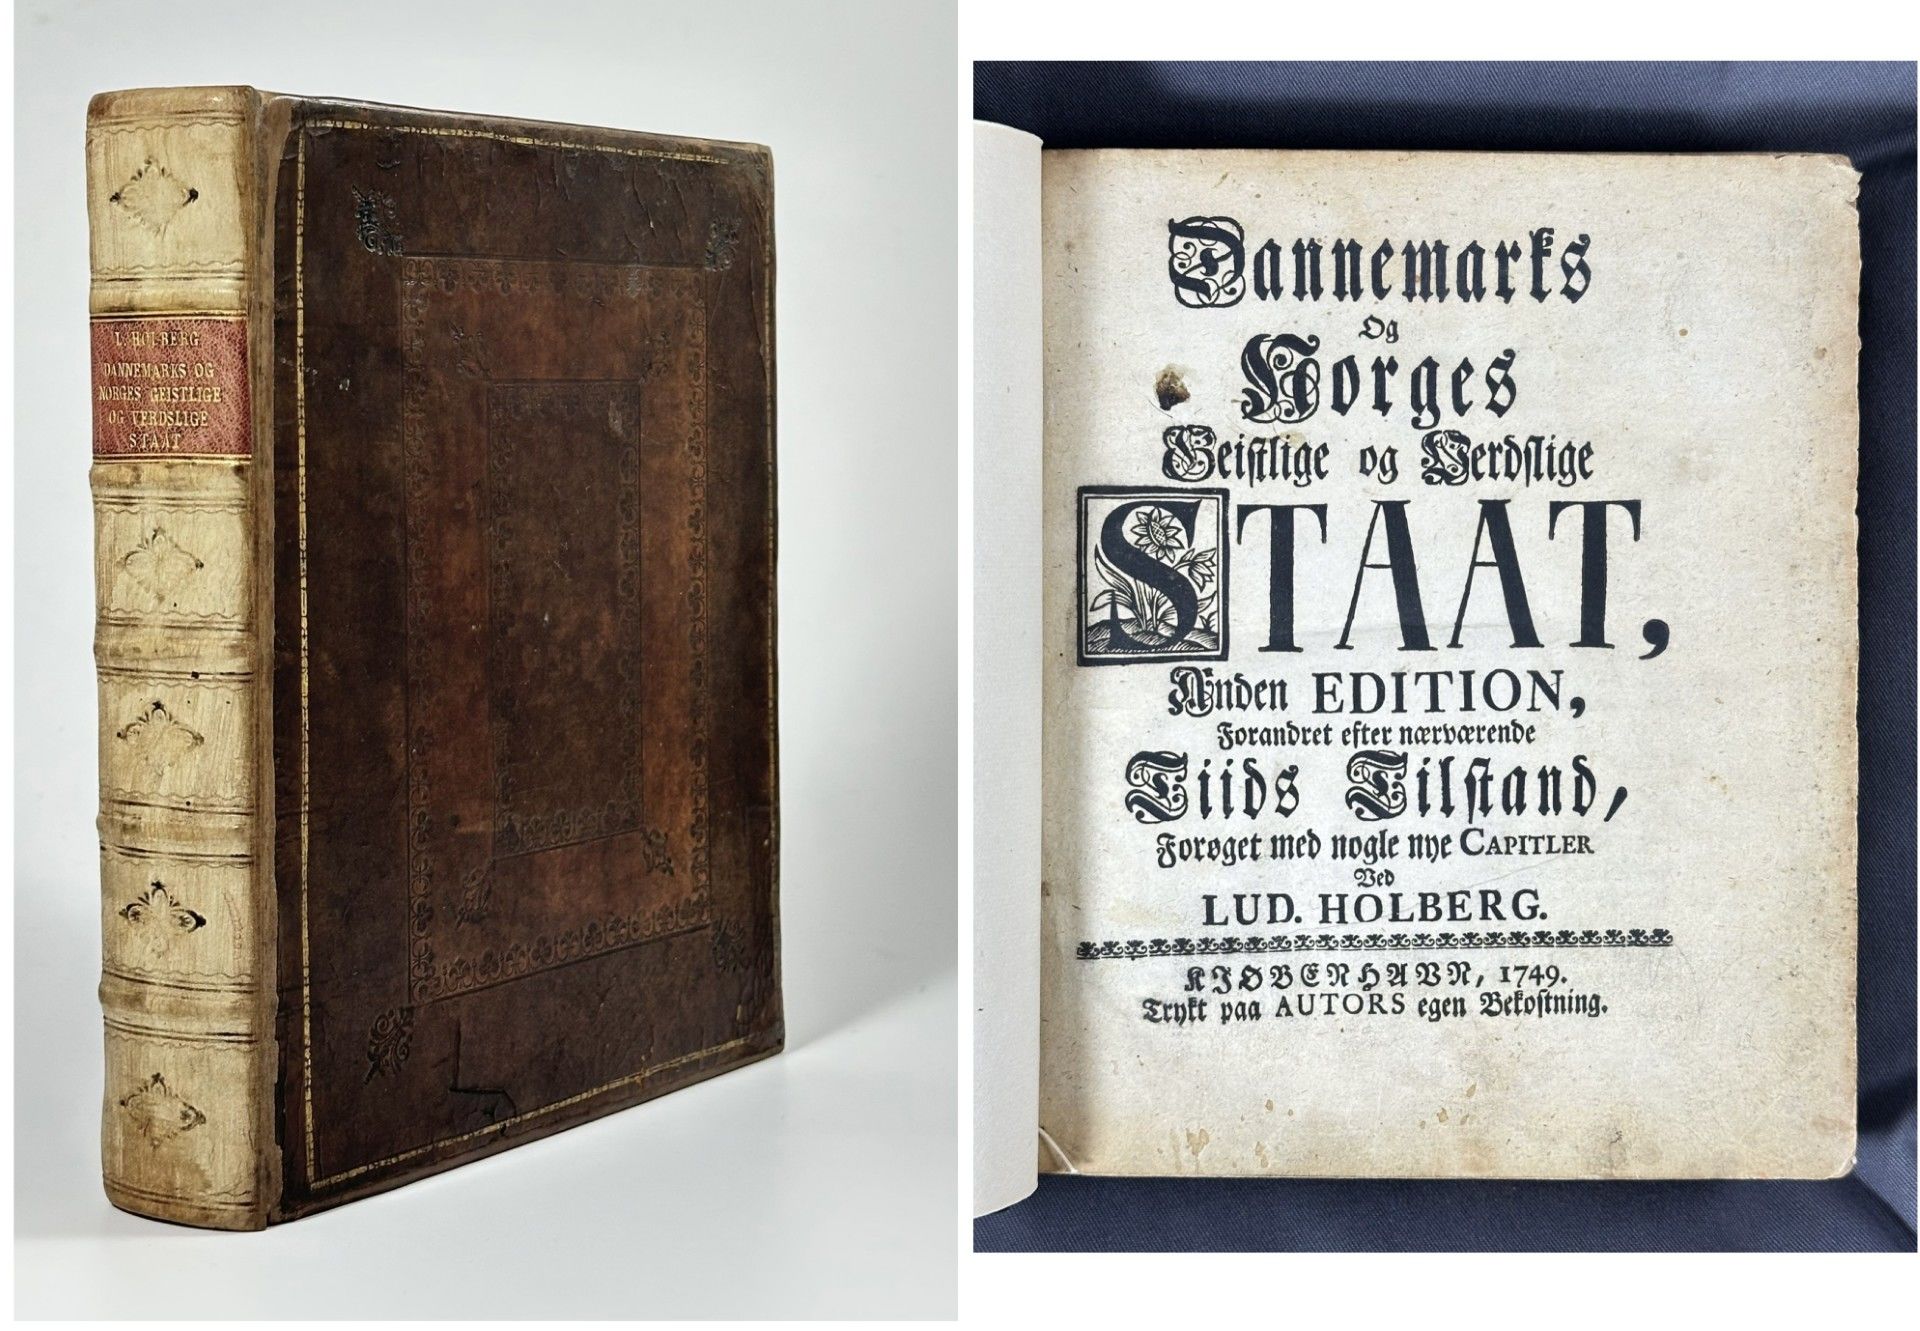 L. HOLBERG
DANNEMARKS OG
NORGES GEISTLIGE
OG VERDSLIGE
STAAT
Dannemarks
Og
Norges
Geistlige og Verdslige
STAAT,
Anden EDITION,
Forandret efter nærværende
Tiids Tilstand,
Forøget med nogle nye CAPITLER
Ved
LUD. HOLBERG.
KIØBENHAVN, 1749.
Trykt paa AUTORS egen Bekostning.